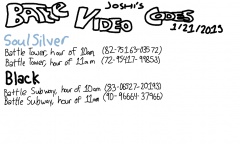 Joshi's
Battle Video Codes
1/21/2013
SoulSilver
Battle Tower, hour of 10am (82-75163-03572)
Battle Tower, hour of 11am (72-95417-99853)
Black
Battle Subway, hour of 10am (83-08527-20193)
Battle Subway, hour of 11am (90-96664-37966)